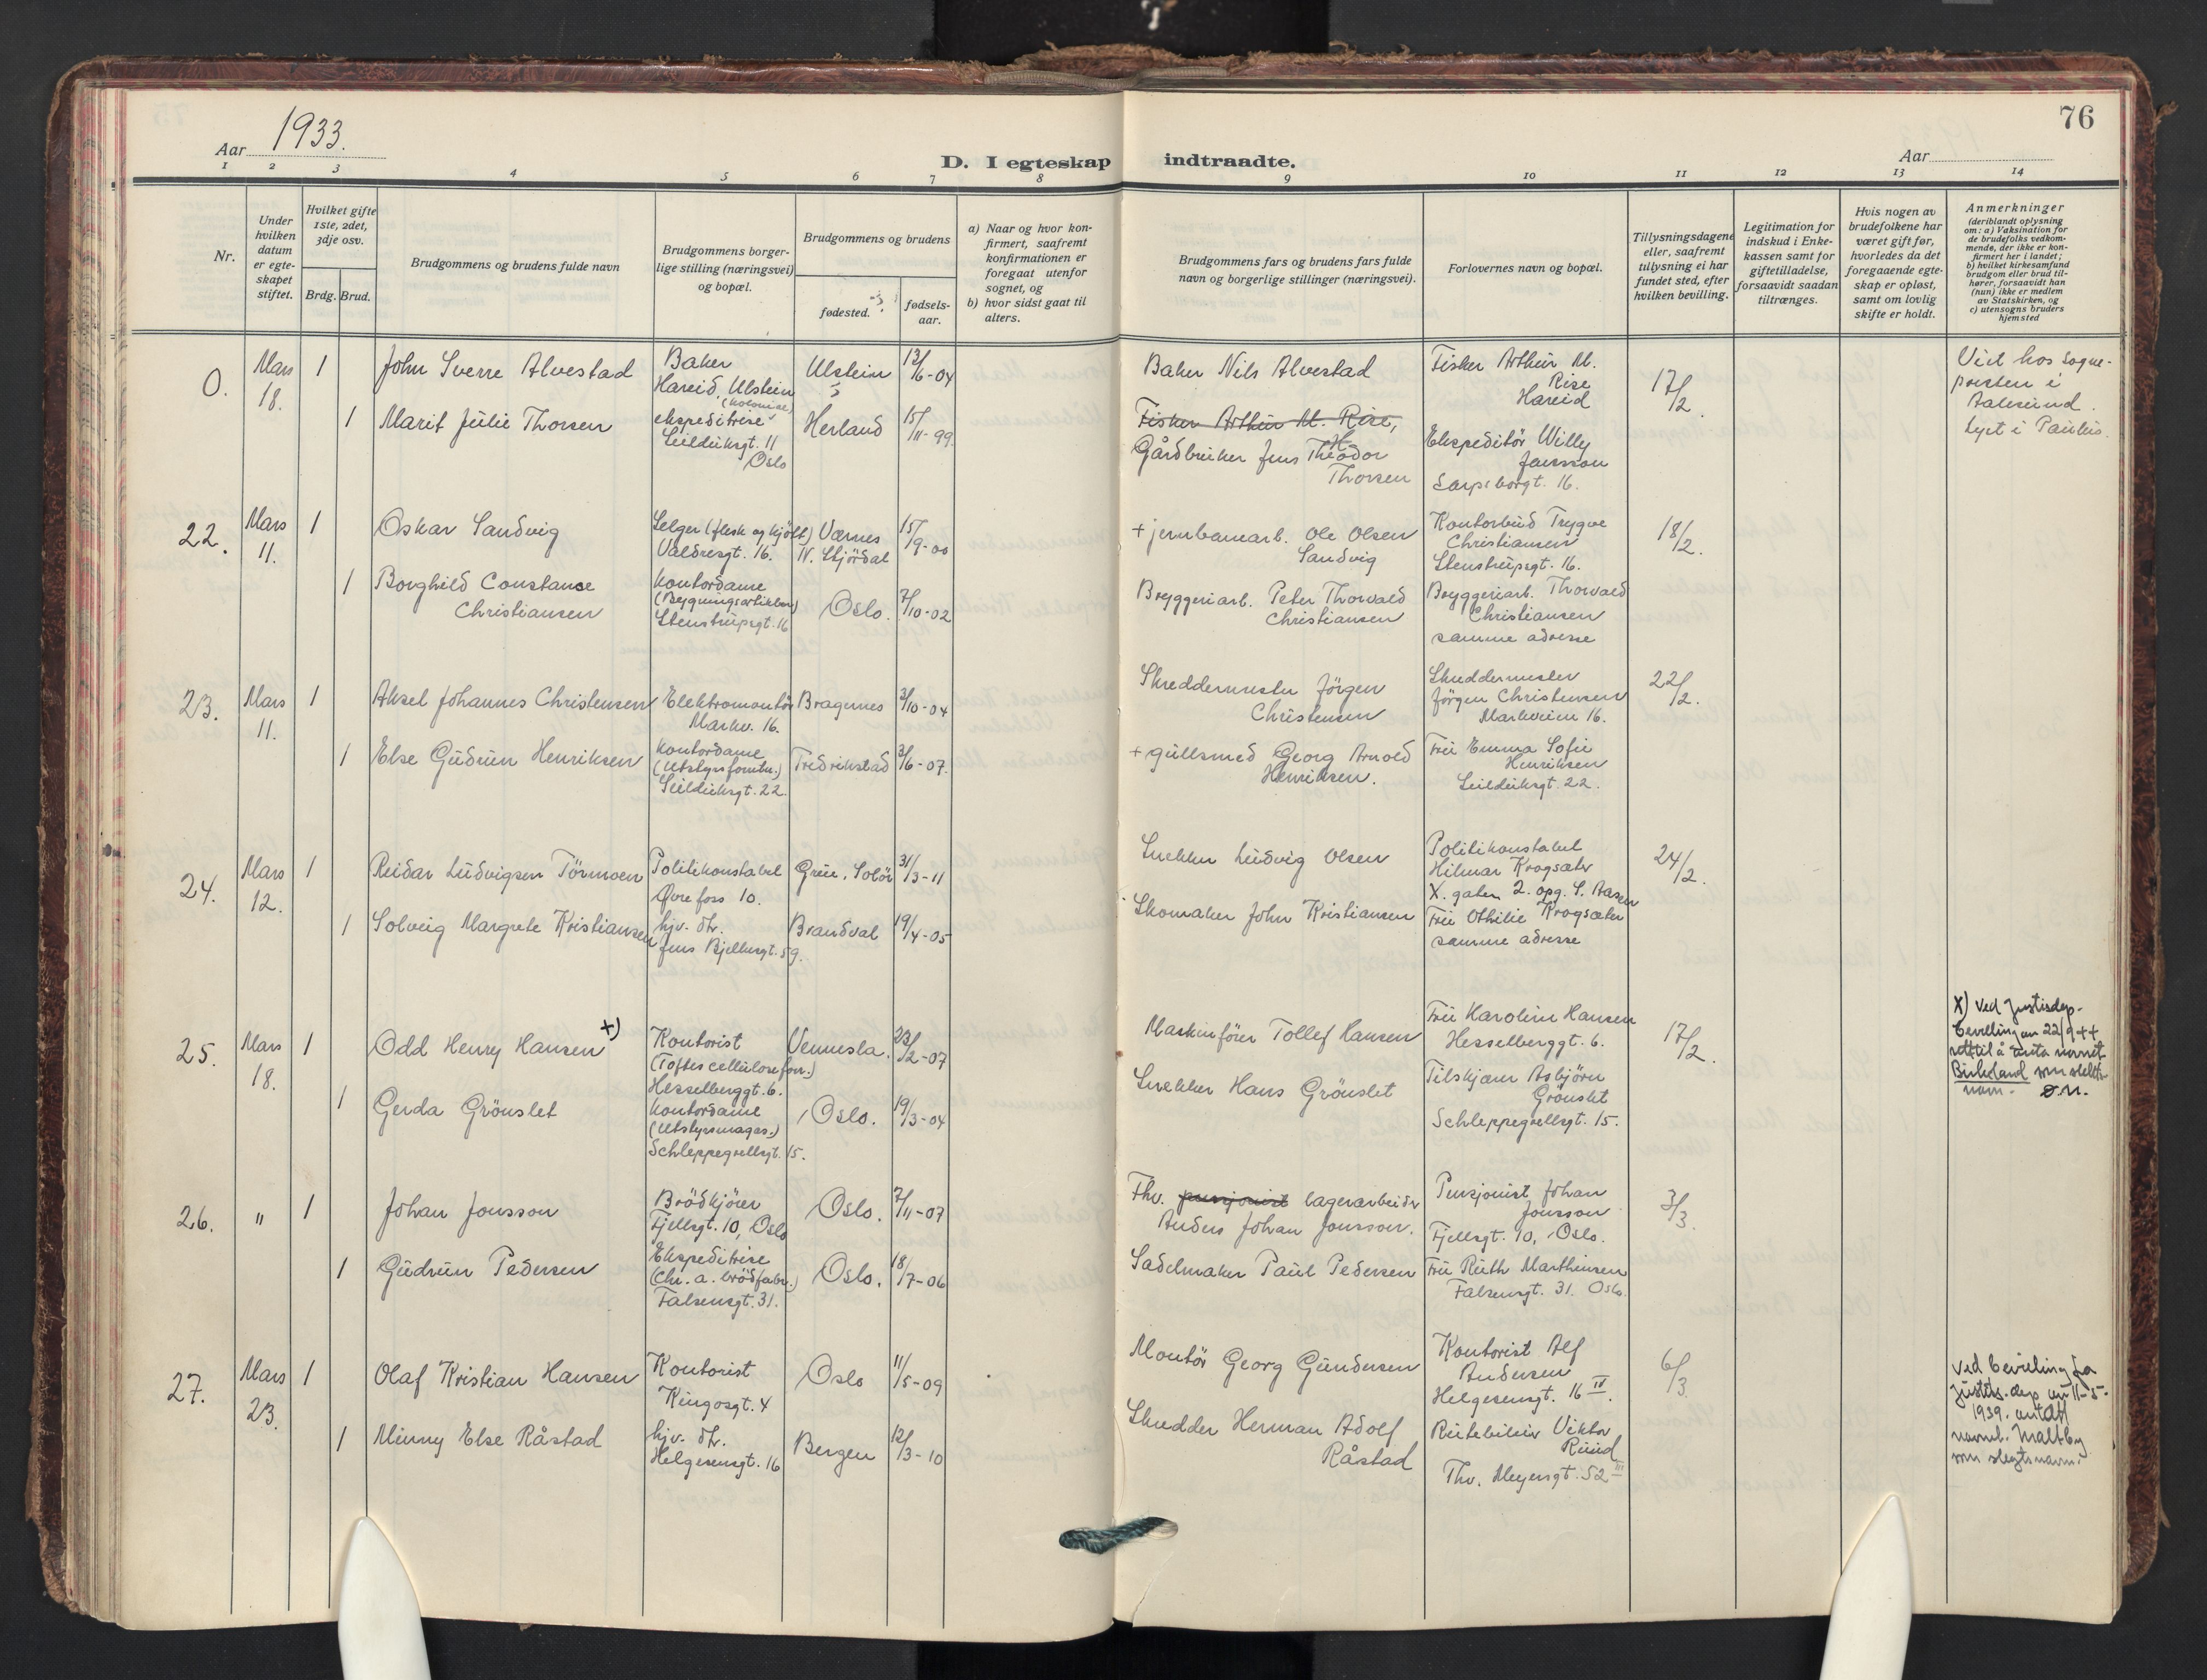 76
Aar 1933.
D. I egteskap indtraadte.
Aar
1 2 3 4 5 6 7 8 9 10 11 12 13 14
Nr.
Under
hvilken
datum
er egte-
skapet
stiftet.
Hvilket gifte
1ste, 2det,
3dje osv.
Brdg. Brud.
Brudgommens og brudens fulde navn
Brudgommens borger-
lige stilling (næringsvei)
og bopæl.
Brudgommens og brudens
fødested.
fødsels-
aar.
a) Naar og hvor kon-
firmert, saafremt
konfirmationen er
foregaat utenfor
sognet, og
b) hvor sidst gaat til
alters.
Brudgommens fars og brudens fars fulde
navn og borgerlige stillinger (næringsvei).
Forlovernes navn og bopæl.
Tillysningsdagene
eller, saafremt
tillysning ei har
fundet sted, efter
hvilken bevilling.
Legitimation for
indskud i Enke-
kassen samt for
giftetilladelse,
forsaavidt saadan
tiltrænges.
Hvis nogen av
brudefolkene har
været gift før,
hvorledes da det
foregaaende egte-
skap er opløst,
samt om lovlig
skifte er holdt.
Anmerkninger
(deriblandt oplysning
om: a) Vaksination for
de brudefolks vedkom-
mende, der ikke er kon-
firmert her i landet;
b) hvilket kirkesamfund
brudgom eller brud til-
hører, forsaavidt han
(hun) ikke er medlem
av Statskirken, og
c) utensogns bruders
hjemsted
0.
Mars
18.
1
John Sverre Alvestad
Baker
Hareid, Ulstein
Ulstein
13/6-04
Baker Nils Alvestad
Fisker Arthur M.
Rise
Hareid
17/2
Viet hos sogne-
presten i
Aalesund.
Lyst i Paulus.
1
Marit Julie Thorsen
(kolonial)
ekspeditrise
Seilduksgt. 11
Oslo
Herland
15/11-99
Fisker Arthur M. Rise,
Gårdbruker Jens Theodor
Thorsen
Ekspeditör Willy
Jansson
Sarpsborgt. 16.
22.
Mars
11.
1
Oskar Sandvig
Selger (flesk og kjött)
Valdresgt. 16.
Værnes
N. Stjördal
15/9-00
+ jernbanearb. Ole Olsen
Sandvig
Kontorbud Trygve
Christiansen
Stenstrupsgt. 16.
18/2.
1
Borghild Constanse
Christiansen
kontordame
(Bygningsartikler)
Stenstrupsgt. 16
Oslo.
7/10-02
Bryggeriarb. Peter Thorvald
Christiansen
Bryggeriarb. Thorvald
Christiansen
samme adresse
23.
Mars
11.
1
Aksel Johannes Christensen
Elektromontör
Markv. 16.
Bragernes
3/10-04
Skreddermester Jörgen
Christensen
Skreddermester
Jörgen Christensen
Markveien 16.
22/2.
1
Else Gudrun Henriksen
kontordame
(Utstyrsforretn.)
Seilduksgt. 22.
Fredrikstad
3/6-07.
+ gullsmed Georg Arnold
Henriksen.
Fru Emma Sofie
Henriksen
Seilduksgt. 22.
24.
Mars
12.
1
Reidar Ludvigsen Törmoen
Politikonstabel
Øvre foss 10.
Grue, Solör
31/3-11
Snekker Ludvig Olsen
Politikonstabel
Hilmar Krogsæter
X. gaten 2. opg. S. Aasen
24/2.
1
Solveig Margrete Kristiansen
hjv. dtr.
Jens Bjelkesgt. 59.
Brandval
19/4-05
Skomaker John Kristiansen
Fru Othilie Krogsæter
samme adresse
25.
Mars
18.
1
Odd Henry Hansen +)
Kontorist
(Toftes cellulosefor.)
Hesselberggt. 6.
Vennesla.
23/2-07
Maskinförer Tollef Hansen
Fru Karoline Hansen
Hesselberggt. 6.
17/2.
X) ved Justisdep.
bevilling av 22/9 44
rett til å anta navnet
Birkeland som slekts-
navn.
1
Gerda Grönslet
kontordame
(Utstyrsmagas.)
Schleppegrellsgt. 15.
Oslo.
19/3-04
Snekker Hans Grönslet
Filskjærer Asbjörn
Grönslet
Schleppegrellsgt. 15.
26.
"
1
Johan Jonsson
Brödkjörer
Fjellgt. 10, Oslo
Oslo.
7/11-07
Fhv. pensjonist lagerarbeider
Anders Johan Jonsson.
Pensjonist Johan
Jonsson
Fjellgt. 10, Oslo.
3/3.
1
Gudrun Pedersen
Ekspeditrise
(Chr. a. brödfabr.)
Falsensgt. 31.
Oslo.
18/7-06
Sadelmaker Paul Pedersen
Fru Ruth Marthinsen
Falsensgt. 31. Oslo.
27.
Mars
23.
1
Olaf Kristian Hansen
Kontorist
Kingosgt. 4
Oslo
11/5-09
Montör Georg Gundersen
Kontorist Alf
Andersen
Helgesensgt. 16 IV
6/3
Ved bevilling fra
Justits.dep av 11-5-
1939. antatt
navnet. Maltby
som slegtsnavn.
1
Minny Else Råstad
hjv. dtr.
Helgesensgt. 16
Bergen
12/3-10
Skredder Herman Adolf
Råstad
Rutebileier Viktor
Ruud
Thv. Meyersgt. 52 III